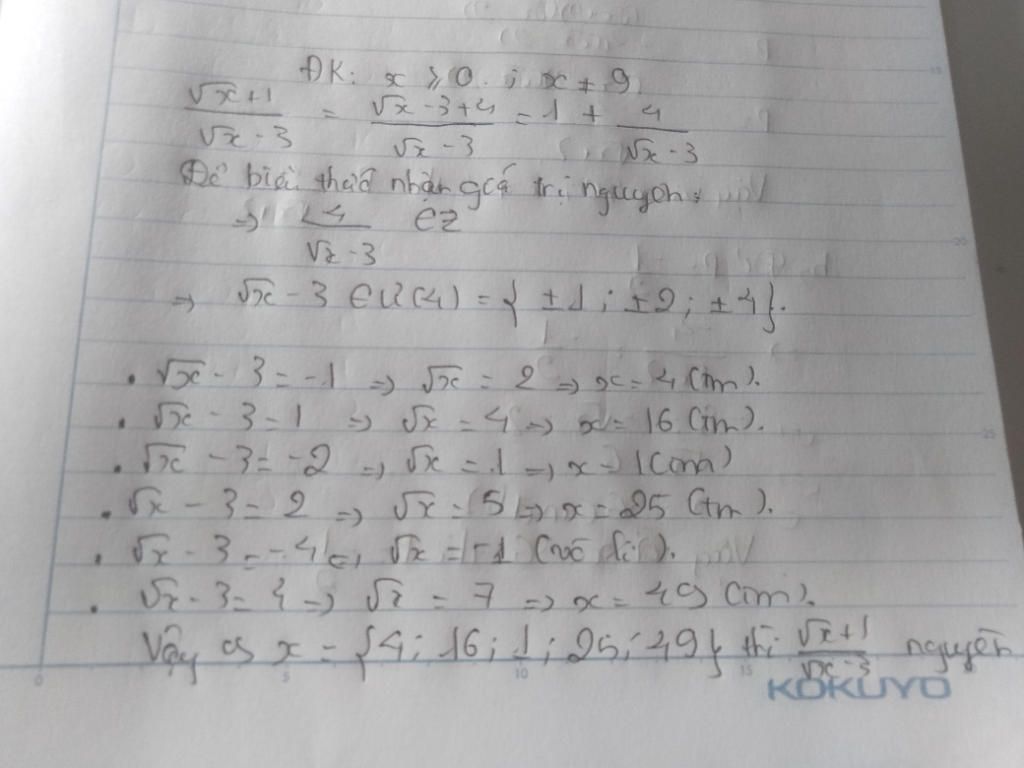 ĐK: x ≥ 0 ; x ≠ 9
√x+1 / √x - 3 = √x - 3+4 / √x - 3 = 1 + 4 / √x - 3
Để biểu thức nhận giá trị nguyên:
=> 4 / √x - 3 ∈ Z
=> √x - 3 ∈ Ư(4) = { ±1 ; ±2 ; ±4 }.
• √x - 3 = -1 => √x = 2 => x = 4 (tm).
• √x - 3 = 1 => √x = 4 => x = 16 (tm).
• √x - 3 = -2 => √x = 1 => x = 1 (tm)
• √x - 3 = 2 => √x = 5 => x = 25 (tm).
• √x - 3 = -4 => √x = -1 (vô lí).
• √x - 3 = 4 => √x = 7 => x = 49 (tm).
Vậy x = {4 ; 16 ; 1 ; 25 ; 49} thì √x+1 / √x - 3 nguyên
0 5 10 15
KOKUYO